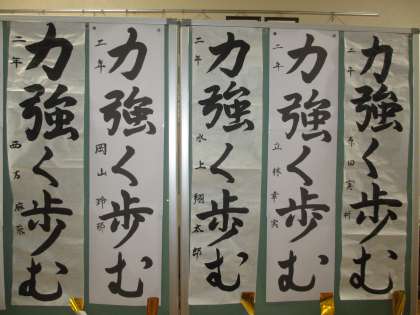 力強く歩む
二年
力強く歩む
二年 立林幸実
力強く歩む
二年 水上翔太郎
力強く歩む
二年 岡山
力強く歩む
二年